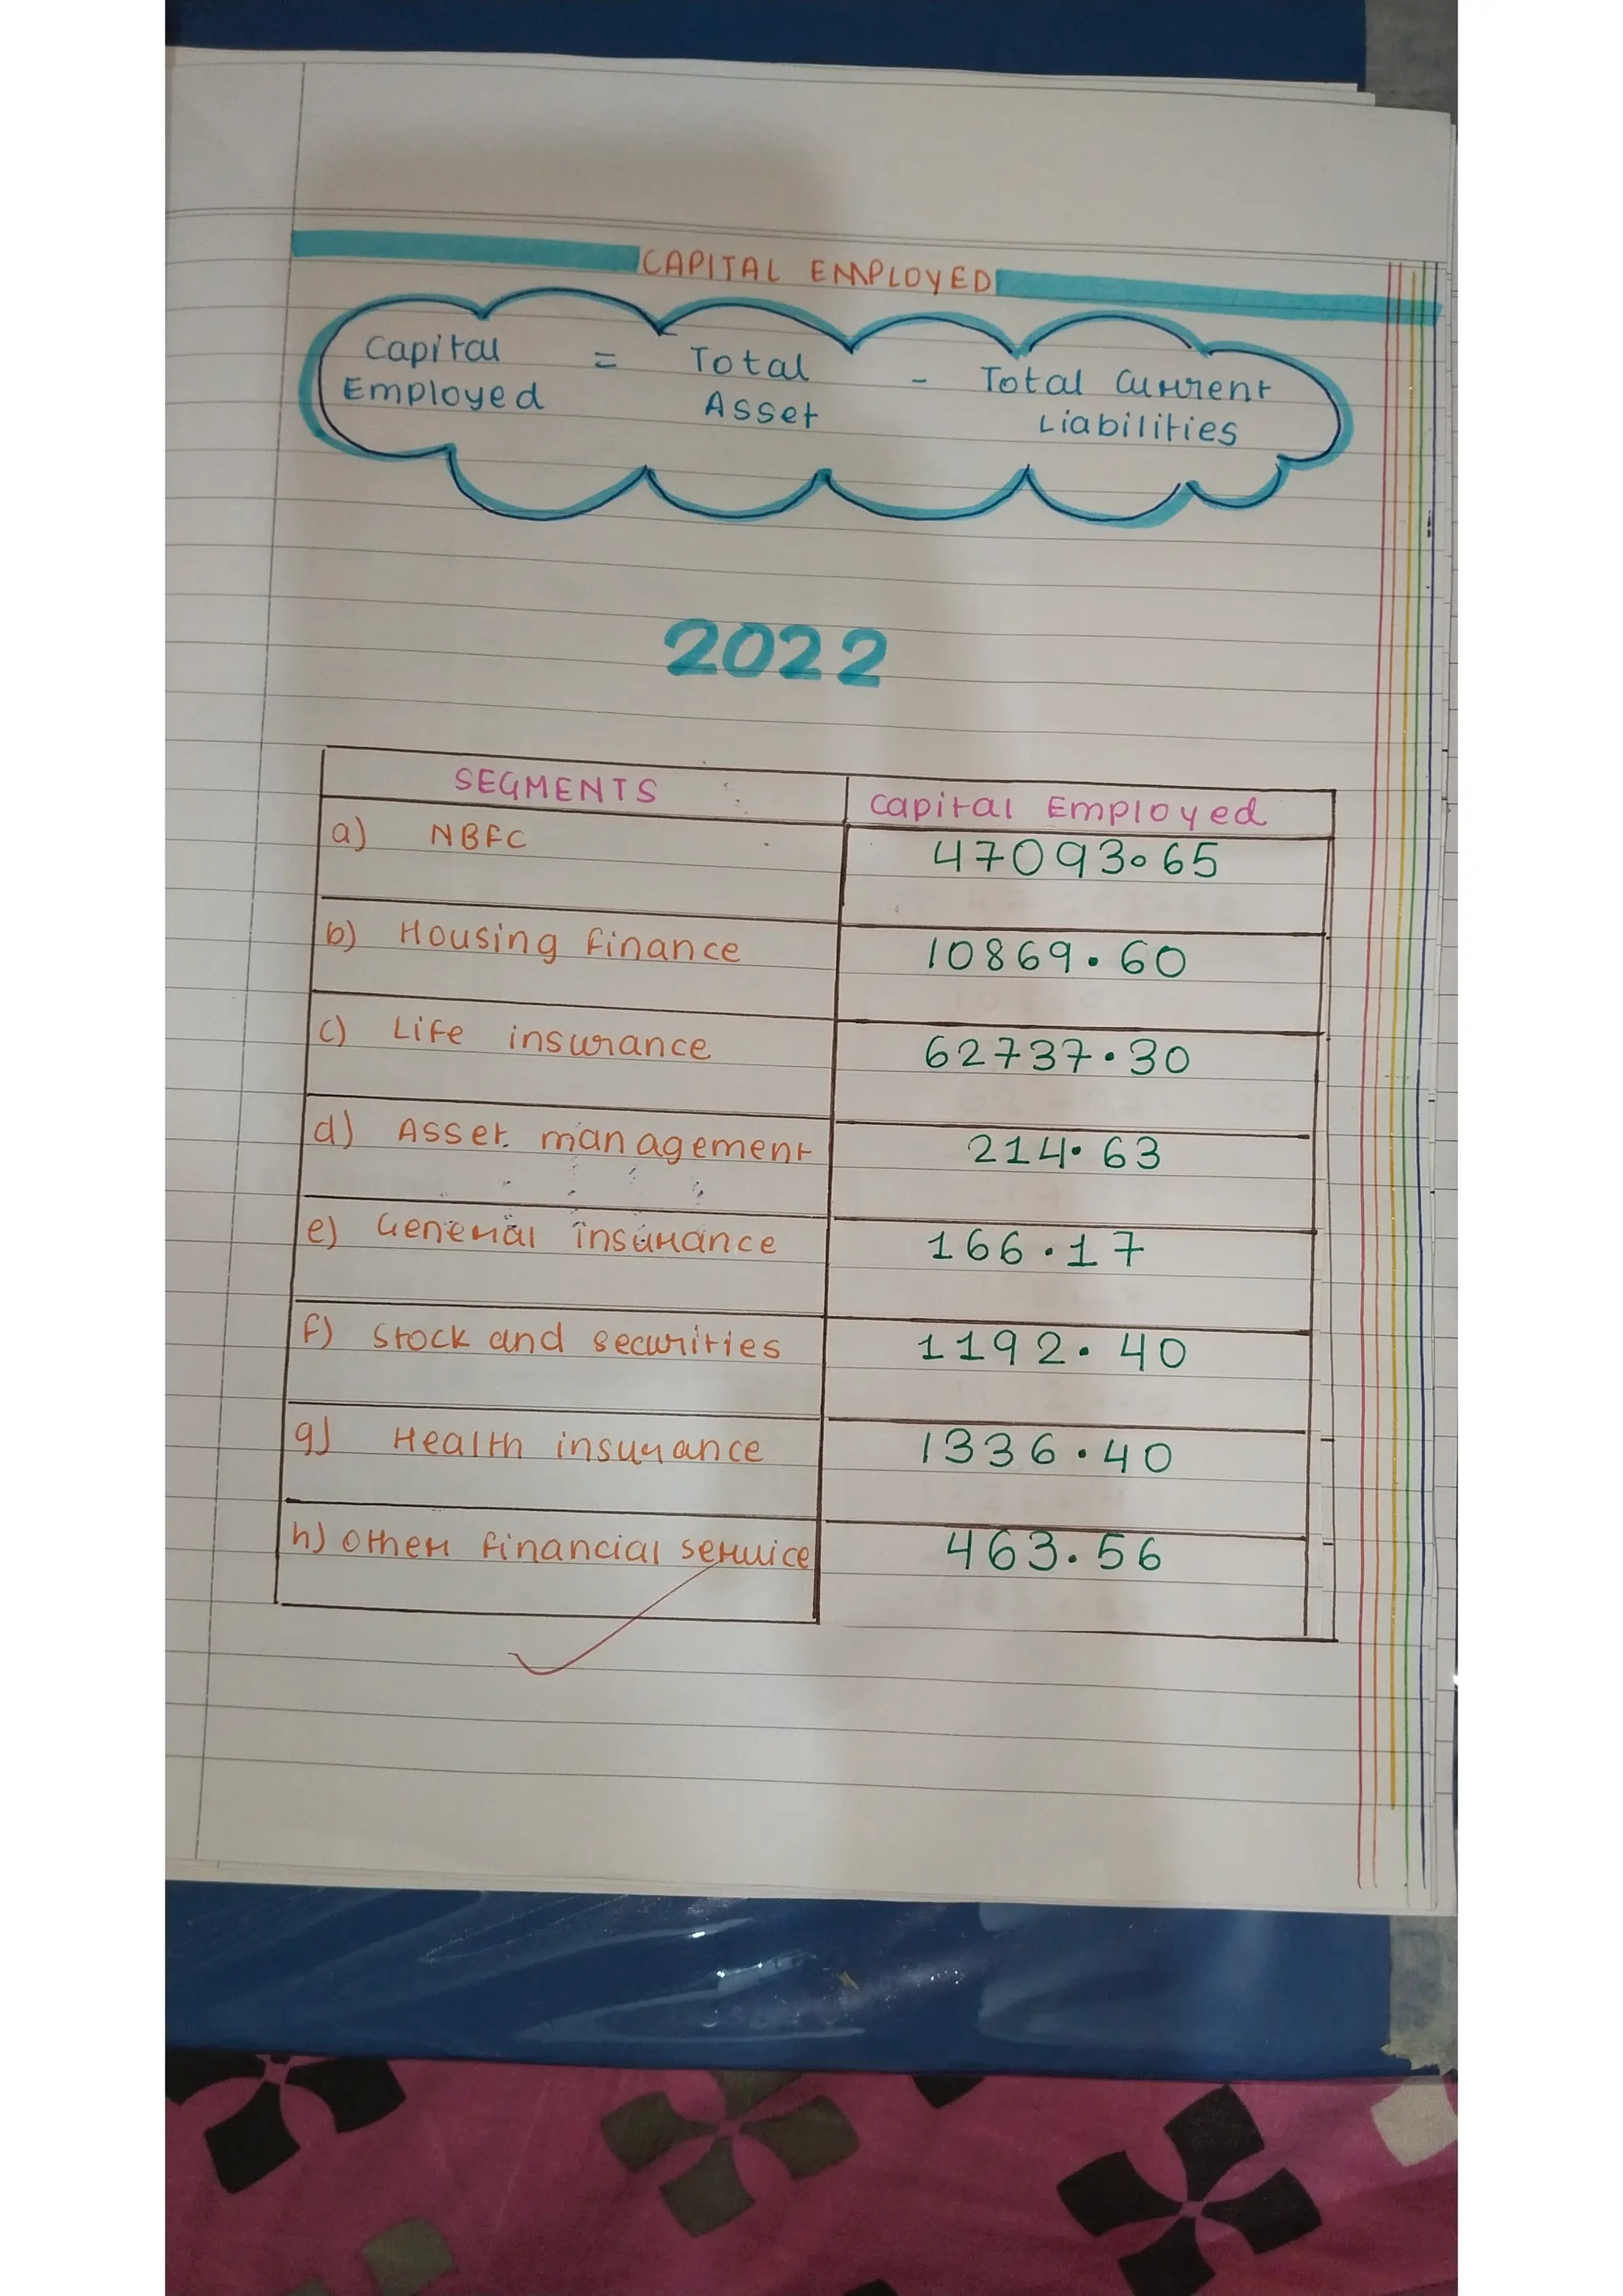 CAPITAL EMPLOYED
Capital = Total - Total Current
Employed Asset Liabilities
2022
SEGMENTS Capital Employed
a) NBFC 47093.65
b) Housing finance 10869.60
c) Life insurance 62737.30
d) Asset management 214.63
e) General insurance 166.17
f) Stock and securities 1192.40
g) Health insurance 1336.40
h) Other financial service 463.56